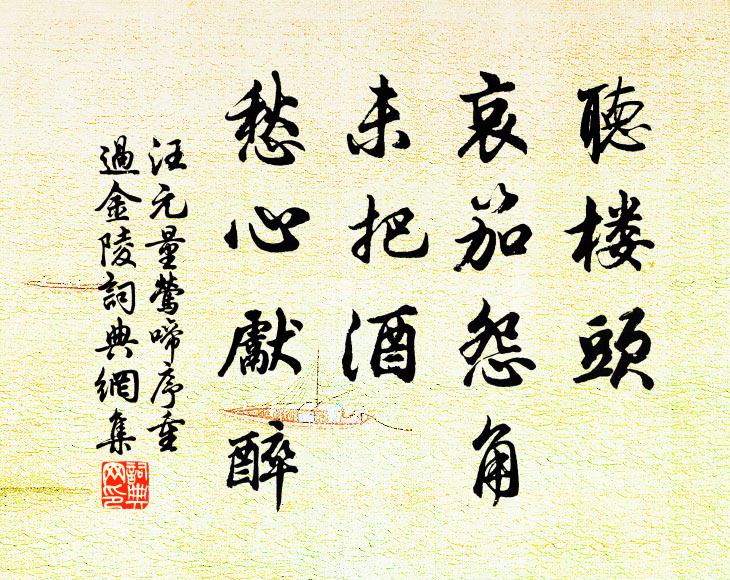 聽楼頭
哀笳怨角
未把酒
愁心獻醉
汪元量鶯啼序重
過金陵詞典網集
詞典
网印